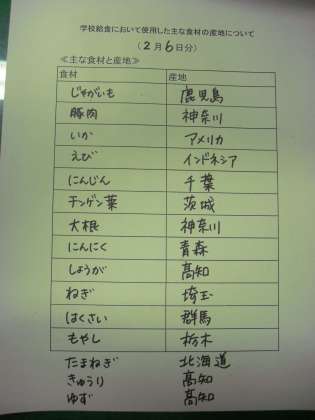 学校給食において使用した主な食材の産地について
(2月6日分)
≪主な食材と産地≫
食材 産地
じゃがいも 鹿児島
豚肉 神奈川
いか アメリカ
えび インドネシア
にんじん 千葉
チンゲン葉 茨城
大根 神奈川
にんにく 青森
しょうが 高知
ねぎ 埼玉
はくさい 群馬
もやし 栃木
たまねぎ 北海道
きゅうり 高知
ゆず 高知